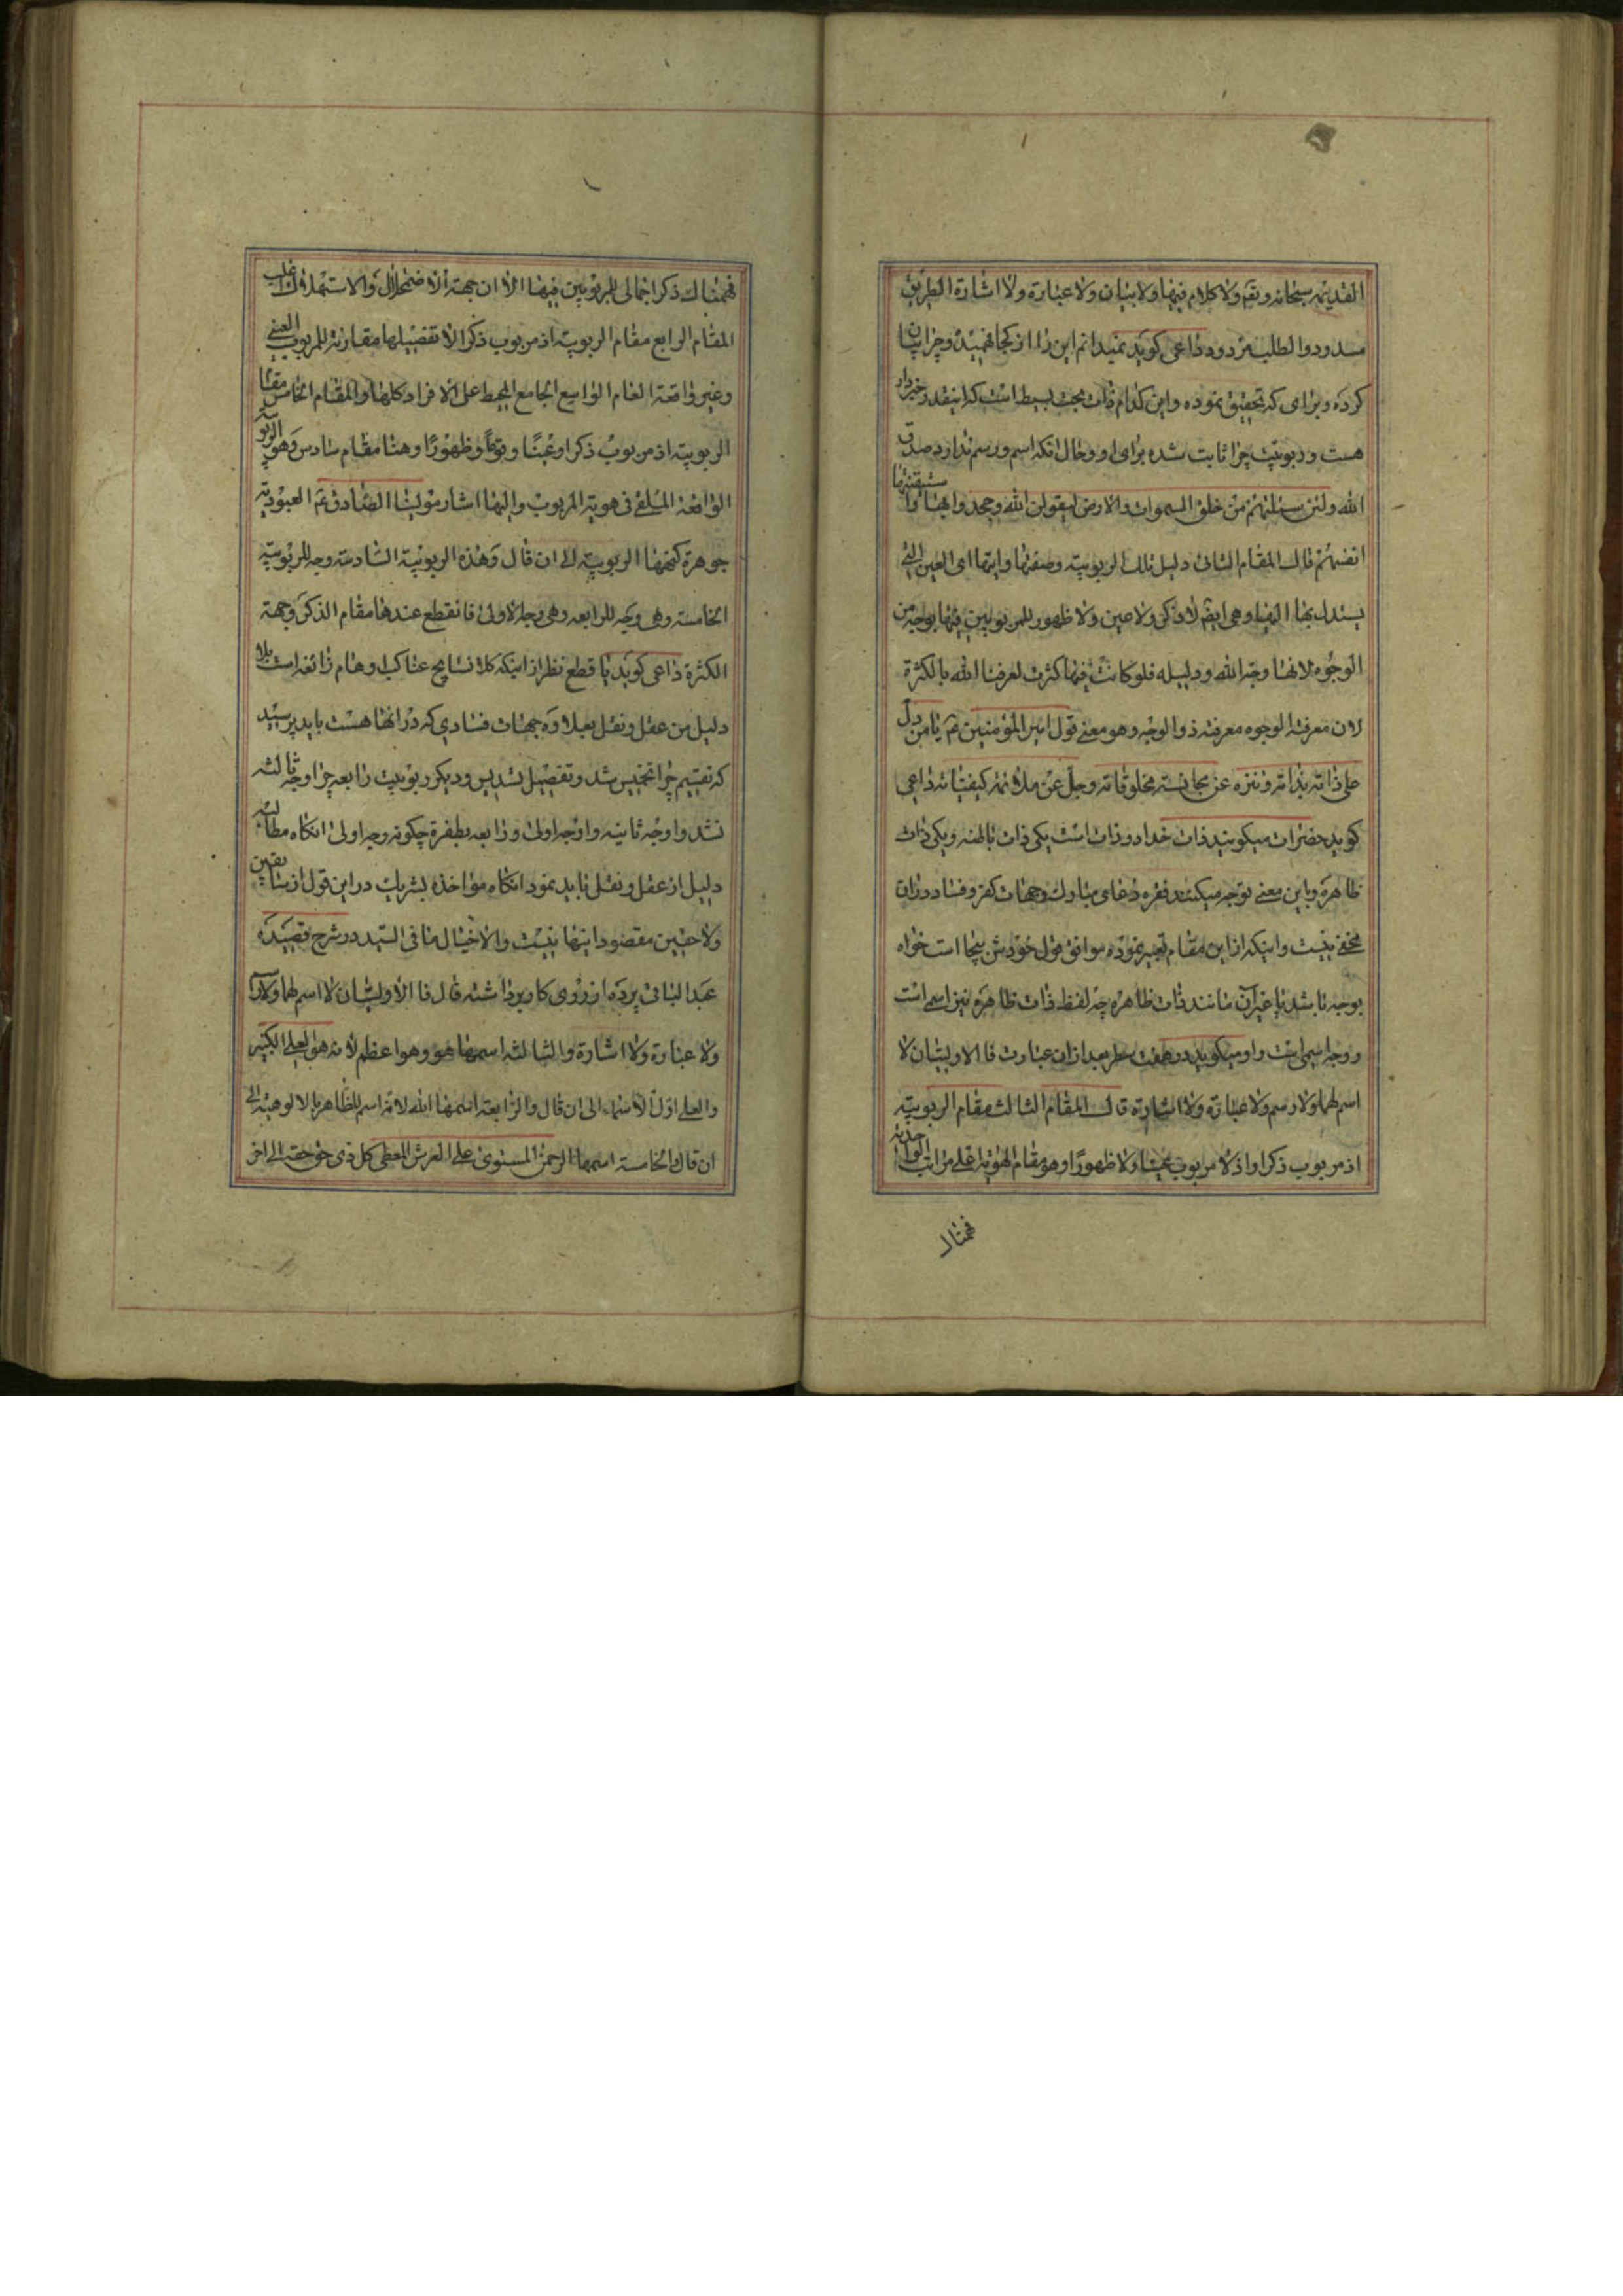 القدیمه سبحانه و تعم ولا کلام فیها ولا بیان ولا عبارة ولا اشارة الطریق
مسدود والطلب مردود داعی کوید نمیدانم این را از کجا فهمیده و چرا بیان
کرده و برای که تحقیق نموده و این کدام ذات بحت بسیط است که اینقدر خبردار
هست و ربوبیت چرا ثابت شده برای او و حال آنکه اسم و رسم ندارد صدق
الله ولئن سئلتهم من خلق السموات والارض لیقولن الله وجحدوا بها واستیقنتها
انفسهم قال المقام الثانی دلیل تلک الربوبیة وصفتها وایتها ای العین التی
یستدل بها الیها وهی ایضا لا ذکر ولا عین ولا ظهور للمربوبین فیها بوجه من
الوجوه لانها وجه الله ودلیله فلو کانت فیها کثرت لعرفنا الله بالکثرة
لان معرفة الوجوه معرفة ذو الوجه وهو معنی قول امیر المؤمنین عم یا من دل
علی ذاته بذاته وتنزه عن مجانسة مخلوقاته وجل عن ملائمة کیفیاته داعی
کوید حضرات میکویند ذات خدا دو ذات است یکی ذات باطنه و یکی ذات
ظاهره و باین معنی توجه میکنند فقره دعای مبارک وجهات کفر و فساد در ان
مخفی نیست و اینکه از این مقام تعبیر نموده موافق قول خودش بیجا است خواه
بوجه باشد یا غیر آن مانند ذات ظاهره چه لفظ ذات ظاهره نیز اسمی است
و وجه اسمی است و او میکوید در هفت سطر بعد از ان عبارت فالاولیان لا
اسم لهما ولا رسم ولا عبارة ولا اشارة قال المقام الثالث مقام الربوبیة
اذ مربوب ذکرا واذ لا مربوب عینا ولا ظهورا وهو مقام الهویة اعلی مراتب الواحدیة
فهناک
فهناک ذکر اجمالی للمربوبین فیها الا ان جهة الاضمحلال والاستهلاک اغلب
المقام الرابع مقام الربوبیة اذ مربوب ذکرا لا تفصیلها مقارنة للمربوب العینی
وغیر واقعة العام الواسع الجامع المحیط علی الافراد کلها والمقام الخامس مقام
الربوبیة اذ مربوب ذکرا وعینا وظهورا وهنا مقام سادس وهو الربوبیة
الواقعة الملقی فی هویة المربوب والیها اشار مولینا الصادق عم العبودیة
جوهرة کنهها الربوبیة الی ان قال وهذه الربوبیة السادسة وجه للربوبیة
الخامسة وهی وجه للرابعه وهی وجه الاولی فانقطع عندها مقام الذکر وجهة
الکثرة داعی کوید با قطع نظر از اینکه کلا نسایج عناکب اوهام زائغه است بلا
دلیل من عقل و نقل بعلاوه جهات فسادی که در انها هست باید پرسید
که تقسیم چرا تخمیس شد و تفصیل تسدیس و دیکر ربوبیت رابعه چرا وجه ثالثه
نشد و او وجه ثانیه و او وجه اولی و رابعه بطفره چکونه وجه اولی انکاه مطالبه
دلیل از عقل و نقل باید نمود انکاه مؤاخذه بشریک در این قول از سابقین
ولاحقین مقصود اینها نیست والا خیال ما فی السید در شرح قصیده
عبد الباقی پرده از روی کار برداشته قال فالاولیان لا اسم لهما ولا رسم
ولا عبارة ولا اشارة والثالثة اسمها هو وهو اعظم لانه هو العلی الکبیر
والعلی اول الاسماء الی ان قال والرابعة اسمها الله لانه اسم للظاهر بالالوهیة الی
ان قال والخامسة اسمها الرحمن المستوی علی العرش المعطی کل ذی حق حقه الی اخر